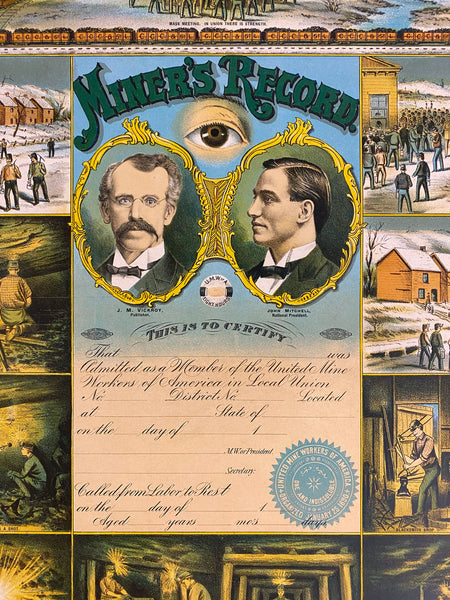 MASS MEETING. IN UNION THERE IS STRENGTH.
MINER'S RECORD.
U.M.W. of A.
J. M. VICAROY,
Publisher.
JOHN MITCHELL,
National President.
THIS IS TO CERTIFY
That was
Admitted as a Member of the United Mine
Workers of America in Local Union
No. District No. Located
at State of
on the day of 1
M.W. or President
Secretary.
Called from Labor to Rest
on the day of 1
Aged years mo's days
UNITED MINE WORKERS OF AMERICA
ONE AND INDIVISIBLE
ORGANIZED JANUARY 25, 1890
A SHOT.
BLACKSMITH SHOP.